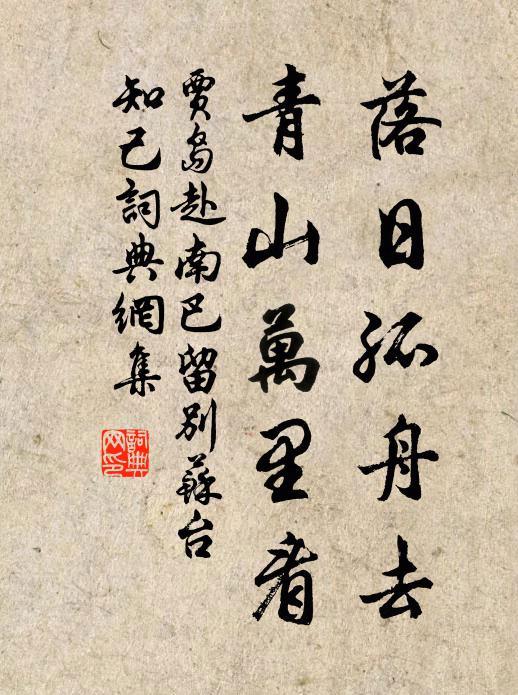 落日孤舟去
青山萬里看
賈島赴南巴留別蘇台
知己詞典網集
詞典網印